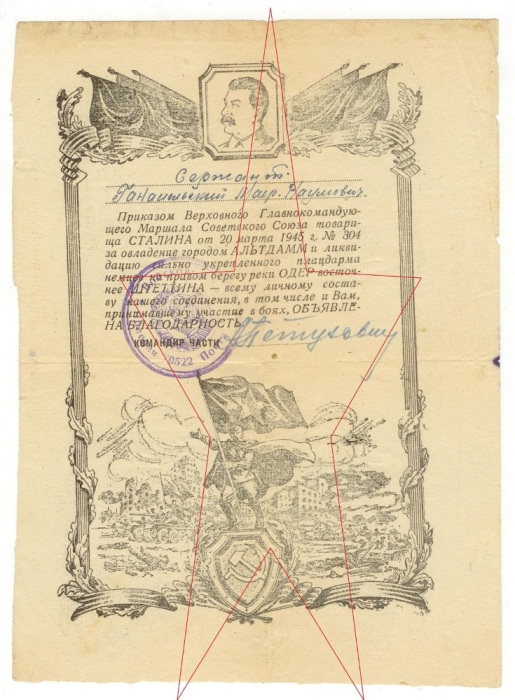 Сержант.
Маер. Наумович.
Приказом Верховного Главнокомандую-
щего Маршала Советского Союза товари-
ща СТАЛИНА от 20 марта 1945 г. № 304
за овладение городом АЛЬТДАММ и ликви-
дацию сильно укрепленного плацдарма
немцев на правом берегу реки ОДЕР восточ-
нее ШТЕТТИНА — всему личному соста-
ву нашего соединения, в том числе и Вам,
принимавшему участие в боях, ОБЪЯВЛЕ-
НА БЛАГОДАРНОСТЬ.
КОМАНДИР ЧАСТИ
Петухович
0522